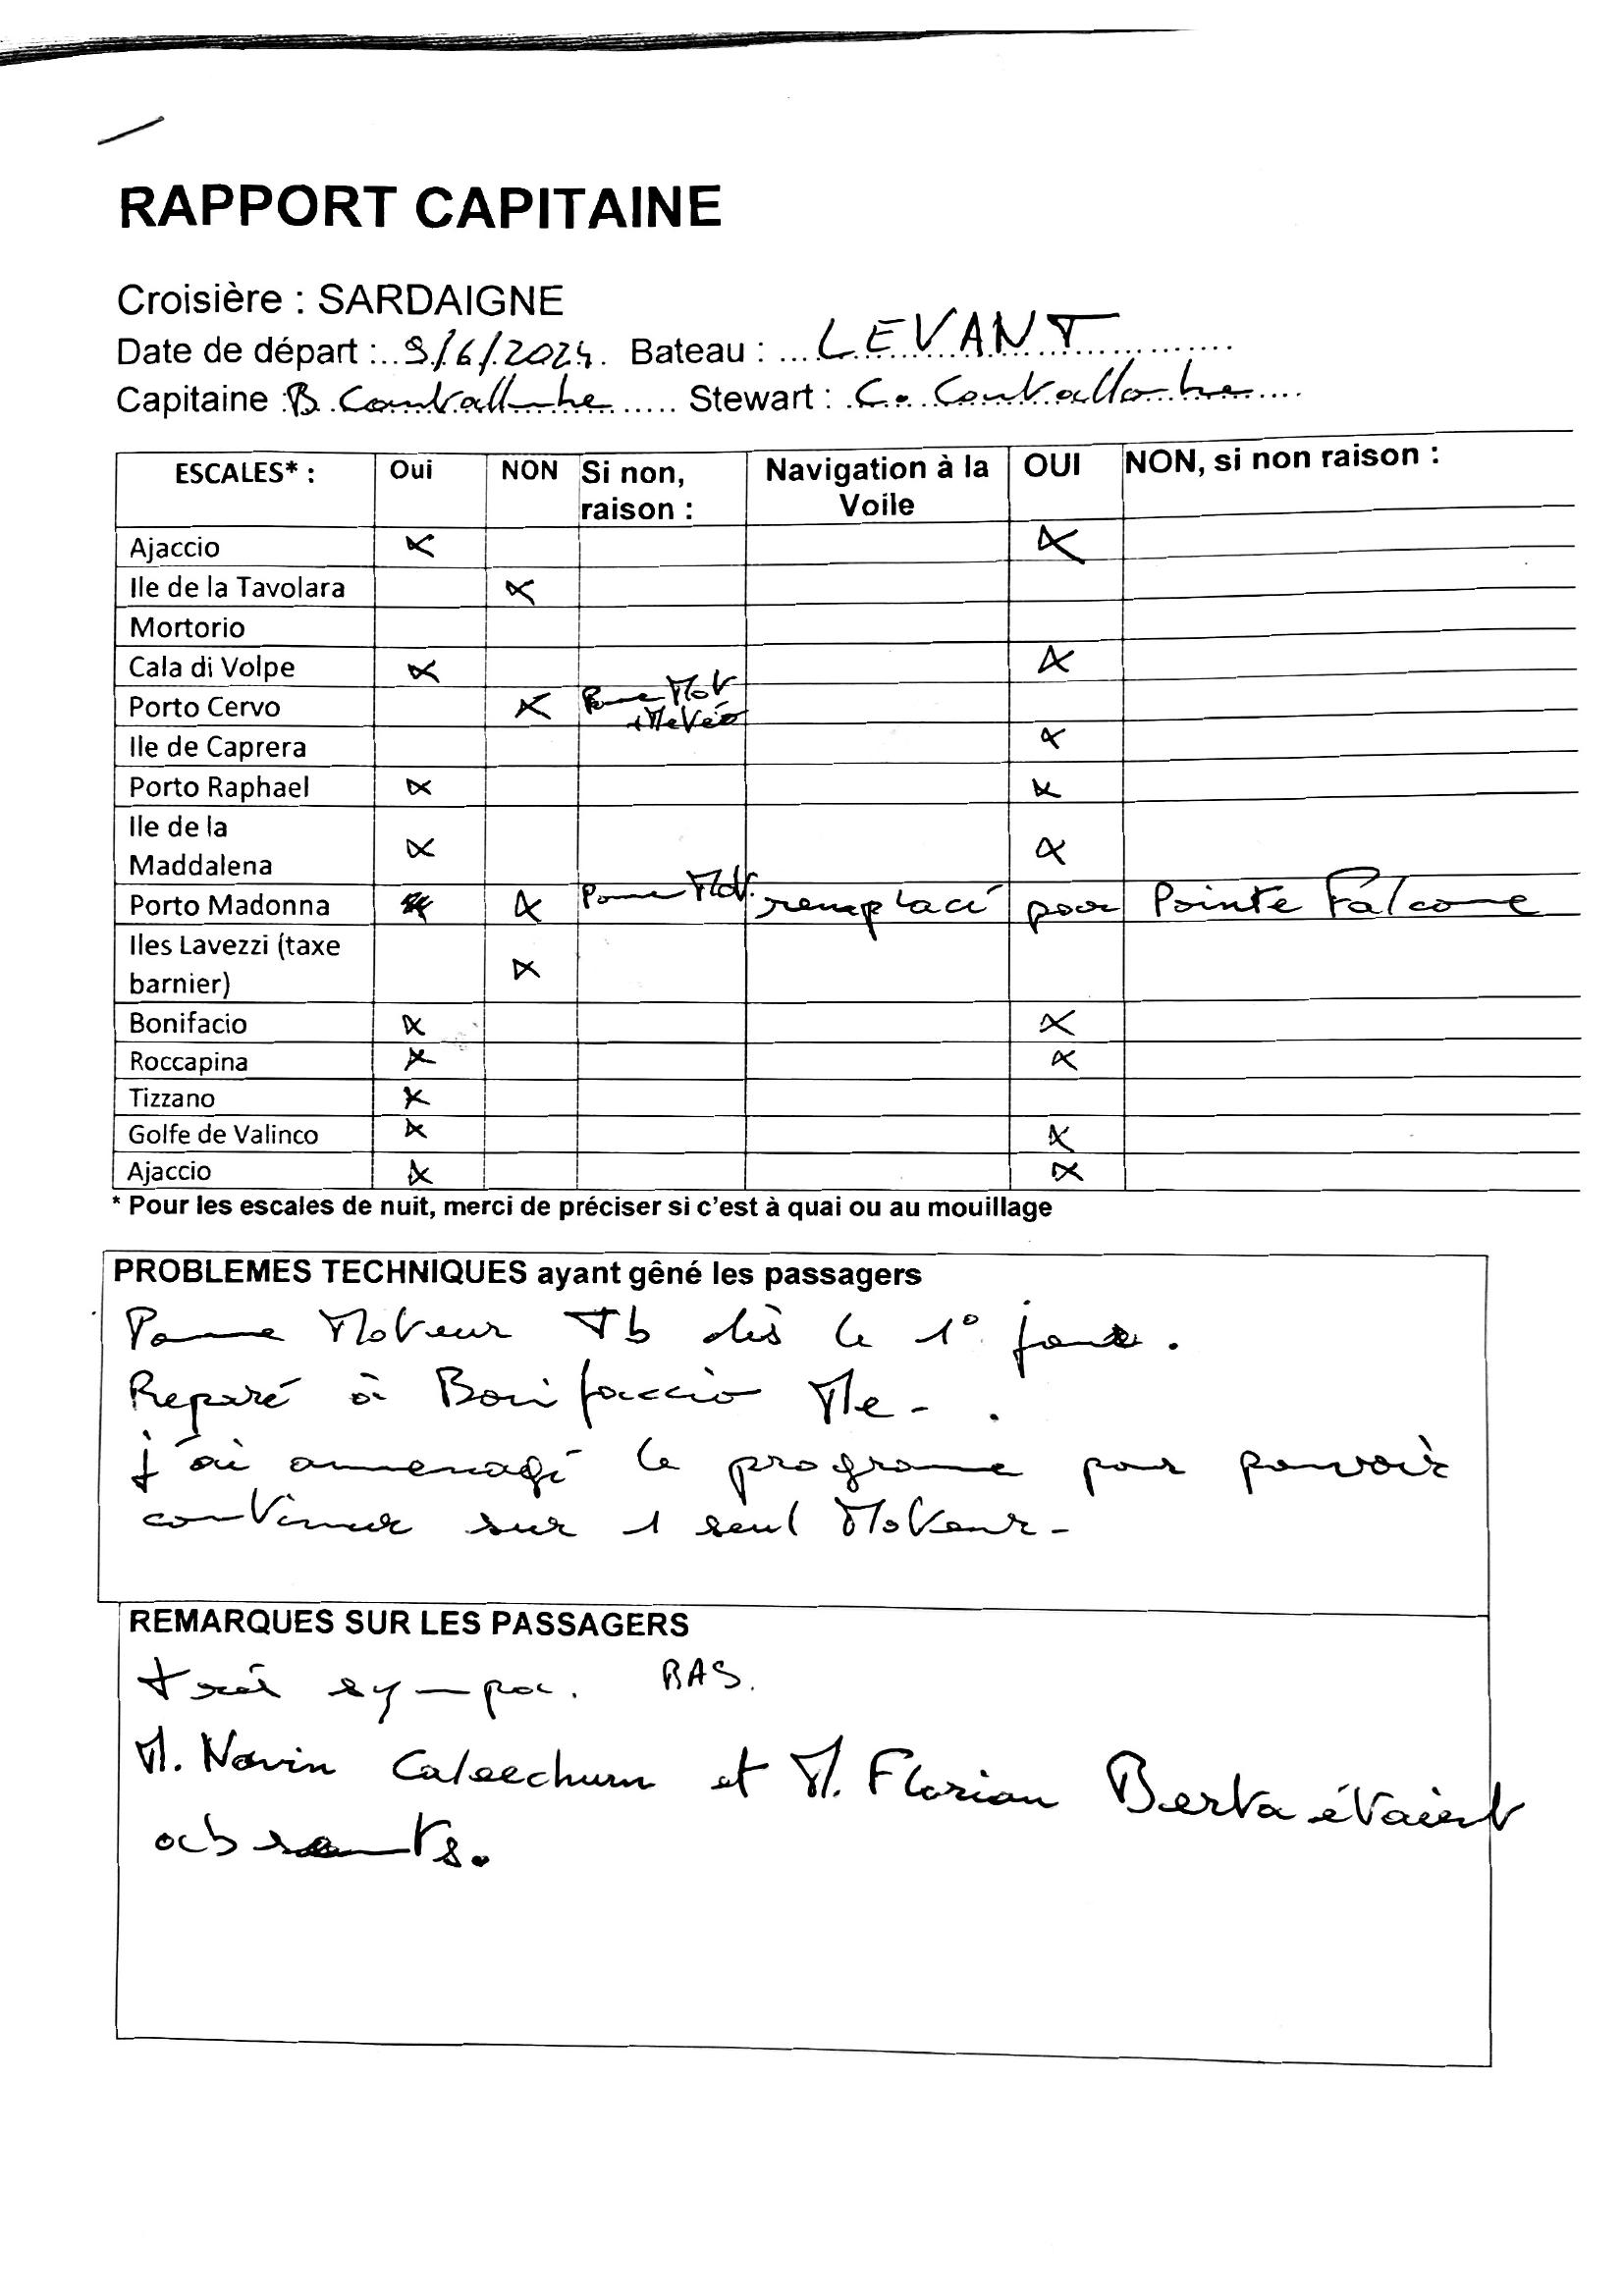 RAPPORT CAPITAINE
Croisière : SARDAIGNE
Date de départ : 9/6/2024. Bateau : LEVANT
Capitaine B. Contrallonhe Stewart : C. Contrallonhe
ESCALES* : Oui NON Si non, raison : Navigation à la Voile OUI NON, si non raison :
Ajaccio x x
Ile de la Tavolara x
Mortorio
Cala di Volpe x x
Porto Cervo x Panne Mot + Météo
Ile de Caprera x
Porto Raphael x x
Ile de la Maddalena x x
Porto Madonna x Panne Mot. remplacé pour Pointe Falcone
Iles Lavezzi (taxe barnier) x
Bonifacio x x
Roccapina x x
Tizzano x
Golfe de Valinco x x
Ajaccio x x
* Pour les escales de nuit, merci de préciser si c'est à quai ou au mouillage
PROBLEMES TECHNIQUES ayant gêné les passagers
Panne Moteur Tb dès le 1° jour.
Reparé à Bonifaccio Me-.
j'ai amenagé le programe pour pouvoir
continuer sur 1 seul Moteur-
REMARQUES SUR LES PASSAGERS
très sympa. RAS.
M. Navin Caleechurn et M. Florian Berta étaient
absents.